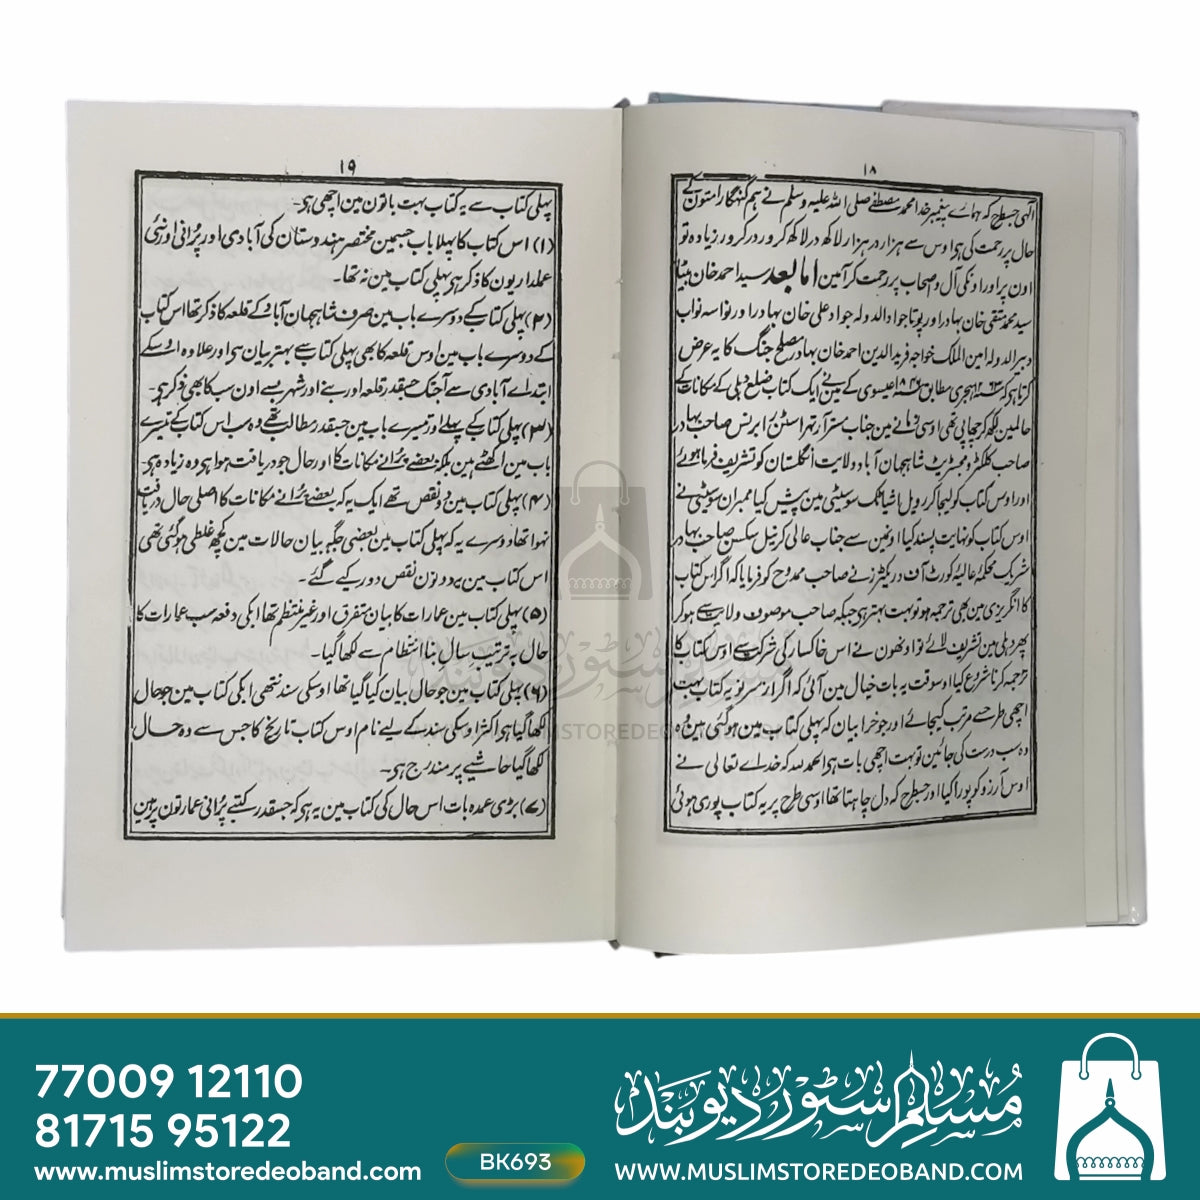 ۱۸
الٰہی جسطرح کہ ہمارے پیغمبر خدا محمد مصطفےٰ صلی اللہ علیہ وسلم نے ہم گنہگار امتون کے
حال پر رحمت کی ہی اوس سے ہزار در ہزار لاکھ در لاکھ کرور در کرور زیادہ تو
اون پر اور اونکی آل و اصحاب پر رحمت کر آمین اما بعد سید احمد خان بیٹا
سید محمد متقی خان بہادر اور پوتا جواد الدولہ جواد علی خان بہادر اور نواسہ نواب
دبیر الدولہ امین الملک خواجہ فرید الدین احمد خان بہادر مصلح جنگ کا یہ عرض
کرتا ہی کہ ۱۲۶۳ ہجری مطابق ۱۸۴۶ عیسوی کے مینے ایک کتاب ضلع دہلی کے مکانات کے
حالمین لکھ کر چھاپی تھی اوسی زمانے مین جناب مسترآرتہراسٹن رابرٹس صاحب بہادر
صاحب کلکٹر و مجسٹریٹ شاہجہان آباد ولایت انگلستان کو تشریف فرما ہوئے
اور اوس کتاب کو لیجا کر رویل اشیاٹک سوسیٹی مین پیش کیا ممبران سوسیٹی نے
اوس کتاب کو نہایت پسند کیا اونمین سے جناب عالی کرنیل سکسن صاحب بہادر
شریک محکمۂ عالیۂ کورٹ آف دریکٹرز نے صاحب ممدوح کو فرمایا کہ اگر اس کتاب
کا انگریزی مین بھی ترجمہ ہو تو بہت بہتر ہی جبکہ صاحب موصوف ولایت سے ہو کر
پھر دہلی مین تشریف لائے تو اونھون نے اس خاکسار کی شرکت سے اوس کتاب کا
ترجمہ کرنا شروع کیا اوسوقت یہ بات خیال مین آئی کہ اگر از سر نو یہ کتاب بہت
اچھی طرح سے مرتب کیجائے اور جو خرابیان کہ پہلی کتاب مین ہوگئی ہین وہ
وہ سب درست کی جائین تو بہت اچھی بات ہی الحمد للہ کہ خداے تعالی نے
اوس آرزو کو پورا کیا اور جسطرح کہ دل چاہتا تھا اوسی طرح پر یہ کتاب پوری ہوئی
۱۹
پہلی کتاب سے یہ کتاب بہت باتون مین اچھی ہی۔
(۱) اس کتاب کا پہلا باب جسمین مختصر ہندوستان کی آبادی اور پرانی اور نئی
عملداریون کا ذکر ہی پہلی کتاب مین نہ تھا۔
(۲) پہلی کتاب کے دوسرے باب مین صرف شاہجہان آباد کے قلعہ کا ذکر تھا اس کتاب
کے دوسرے باب مین اوس قلعہ کا بھی پہلی کتاب سے بہتر بیان ہی اور علاوہ اوسکے
ابتداے آبادی سے آجتک جسقدر قلعہ اور بنے اور شہر بسے اون سب کا بھی ذکر ہی۔
(۳) پہلی کتاب کے پہلے اور تیسرے باب مین جسقدر مطالب تھے وہ سب اس کتاب کے تیسرے
باب مین اکٹھے ہین بلکہ بعضے پرانے مکانات کا اور حال جو دریافت ہوا ہی وہ زیادہ ہی۔
(۴) پہلی کتاب مین دو نقص تھے ایک یہ کہ بعضے پرانے مکانات کا اصلی حال دریافت
نہوا تھا دوسرے یہ کہ پہلی کتاب مین بعضی جگہہ بیان حالات مین کچھ غلطی ہوگئی تھی
اس کتاب مین یہ دونون نقص دور کیے گئے۔
(۵) پہلی کتاب مین عمارات کا بیان متفرق اور غیر منتظم تھا ابکی دفعہ سب عمارات کا
حال بہ ترتیب سال بنا انتظام سے لکھا گیا۔
(۶) پہلی کتاب مین جو حال بیان کیا گیا تھا اوسکی سند نتھی ابکی کتاب مین جو حال
لکھا گیا ہی اکثر اوسکی سند کے لیے نام اوس کتاب تاریخ کا جس سے وہ حال
لکھا گیا حاشیے پر مندرج ہی۔
(۷) بڑی عمدہ بات اس حال کی کتاب مین یہ ہی کہ جسقدر کتبے پرانی عمارتون پر ہین
مسلم سٹور دیوبند
MSTOREDEOBAND.COM
77009 12110
81715 95122
www.muslimstoredeoband.com
BK693
مسلم سٹور دیوبند
WWW.MUSLIMSTOREDEOBAND.COM